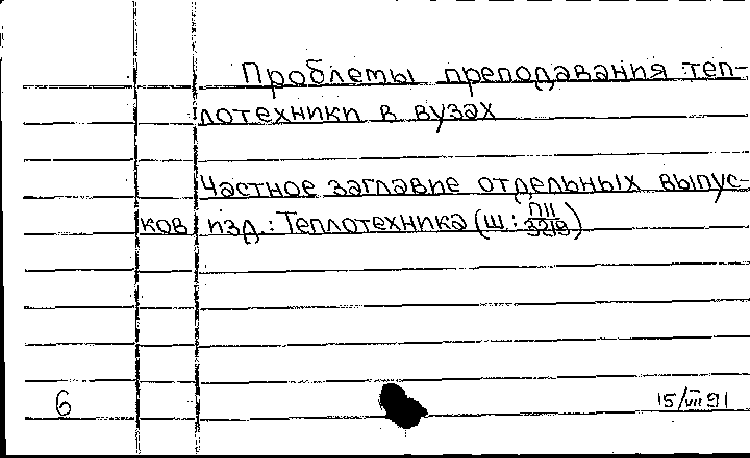 Проблемы преподавания теп-
лотехники в вузах
Частное заглавие отдельных выпус-
ков изд.: Теплотехника (ш: П11/3219)
6 15/VII 91